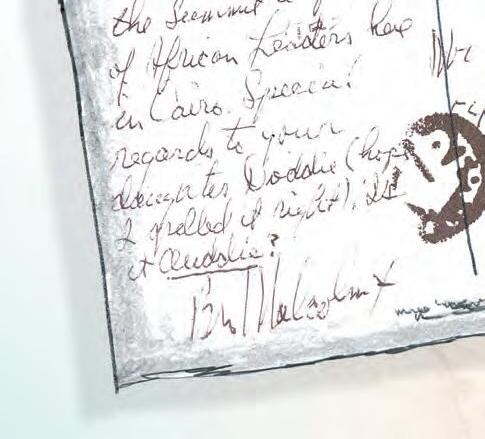 the Summit
of African Leaders here
in Cairo. Special
regards to your
daughter Doddie (hope
I spelled it right). Is
it Auddie?
Bro Malcolm X